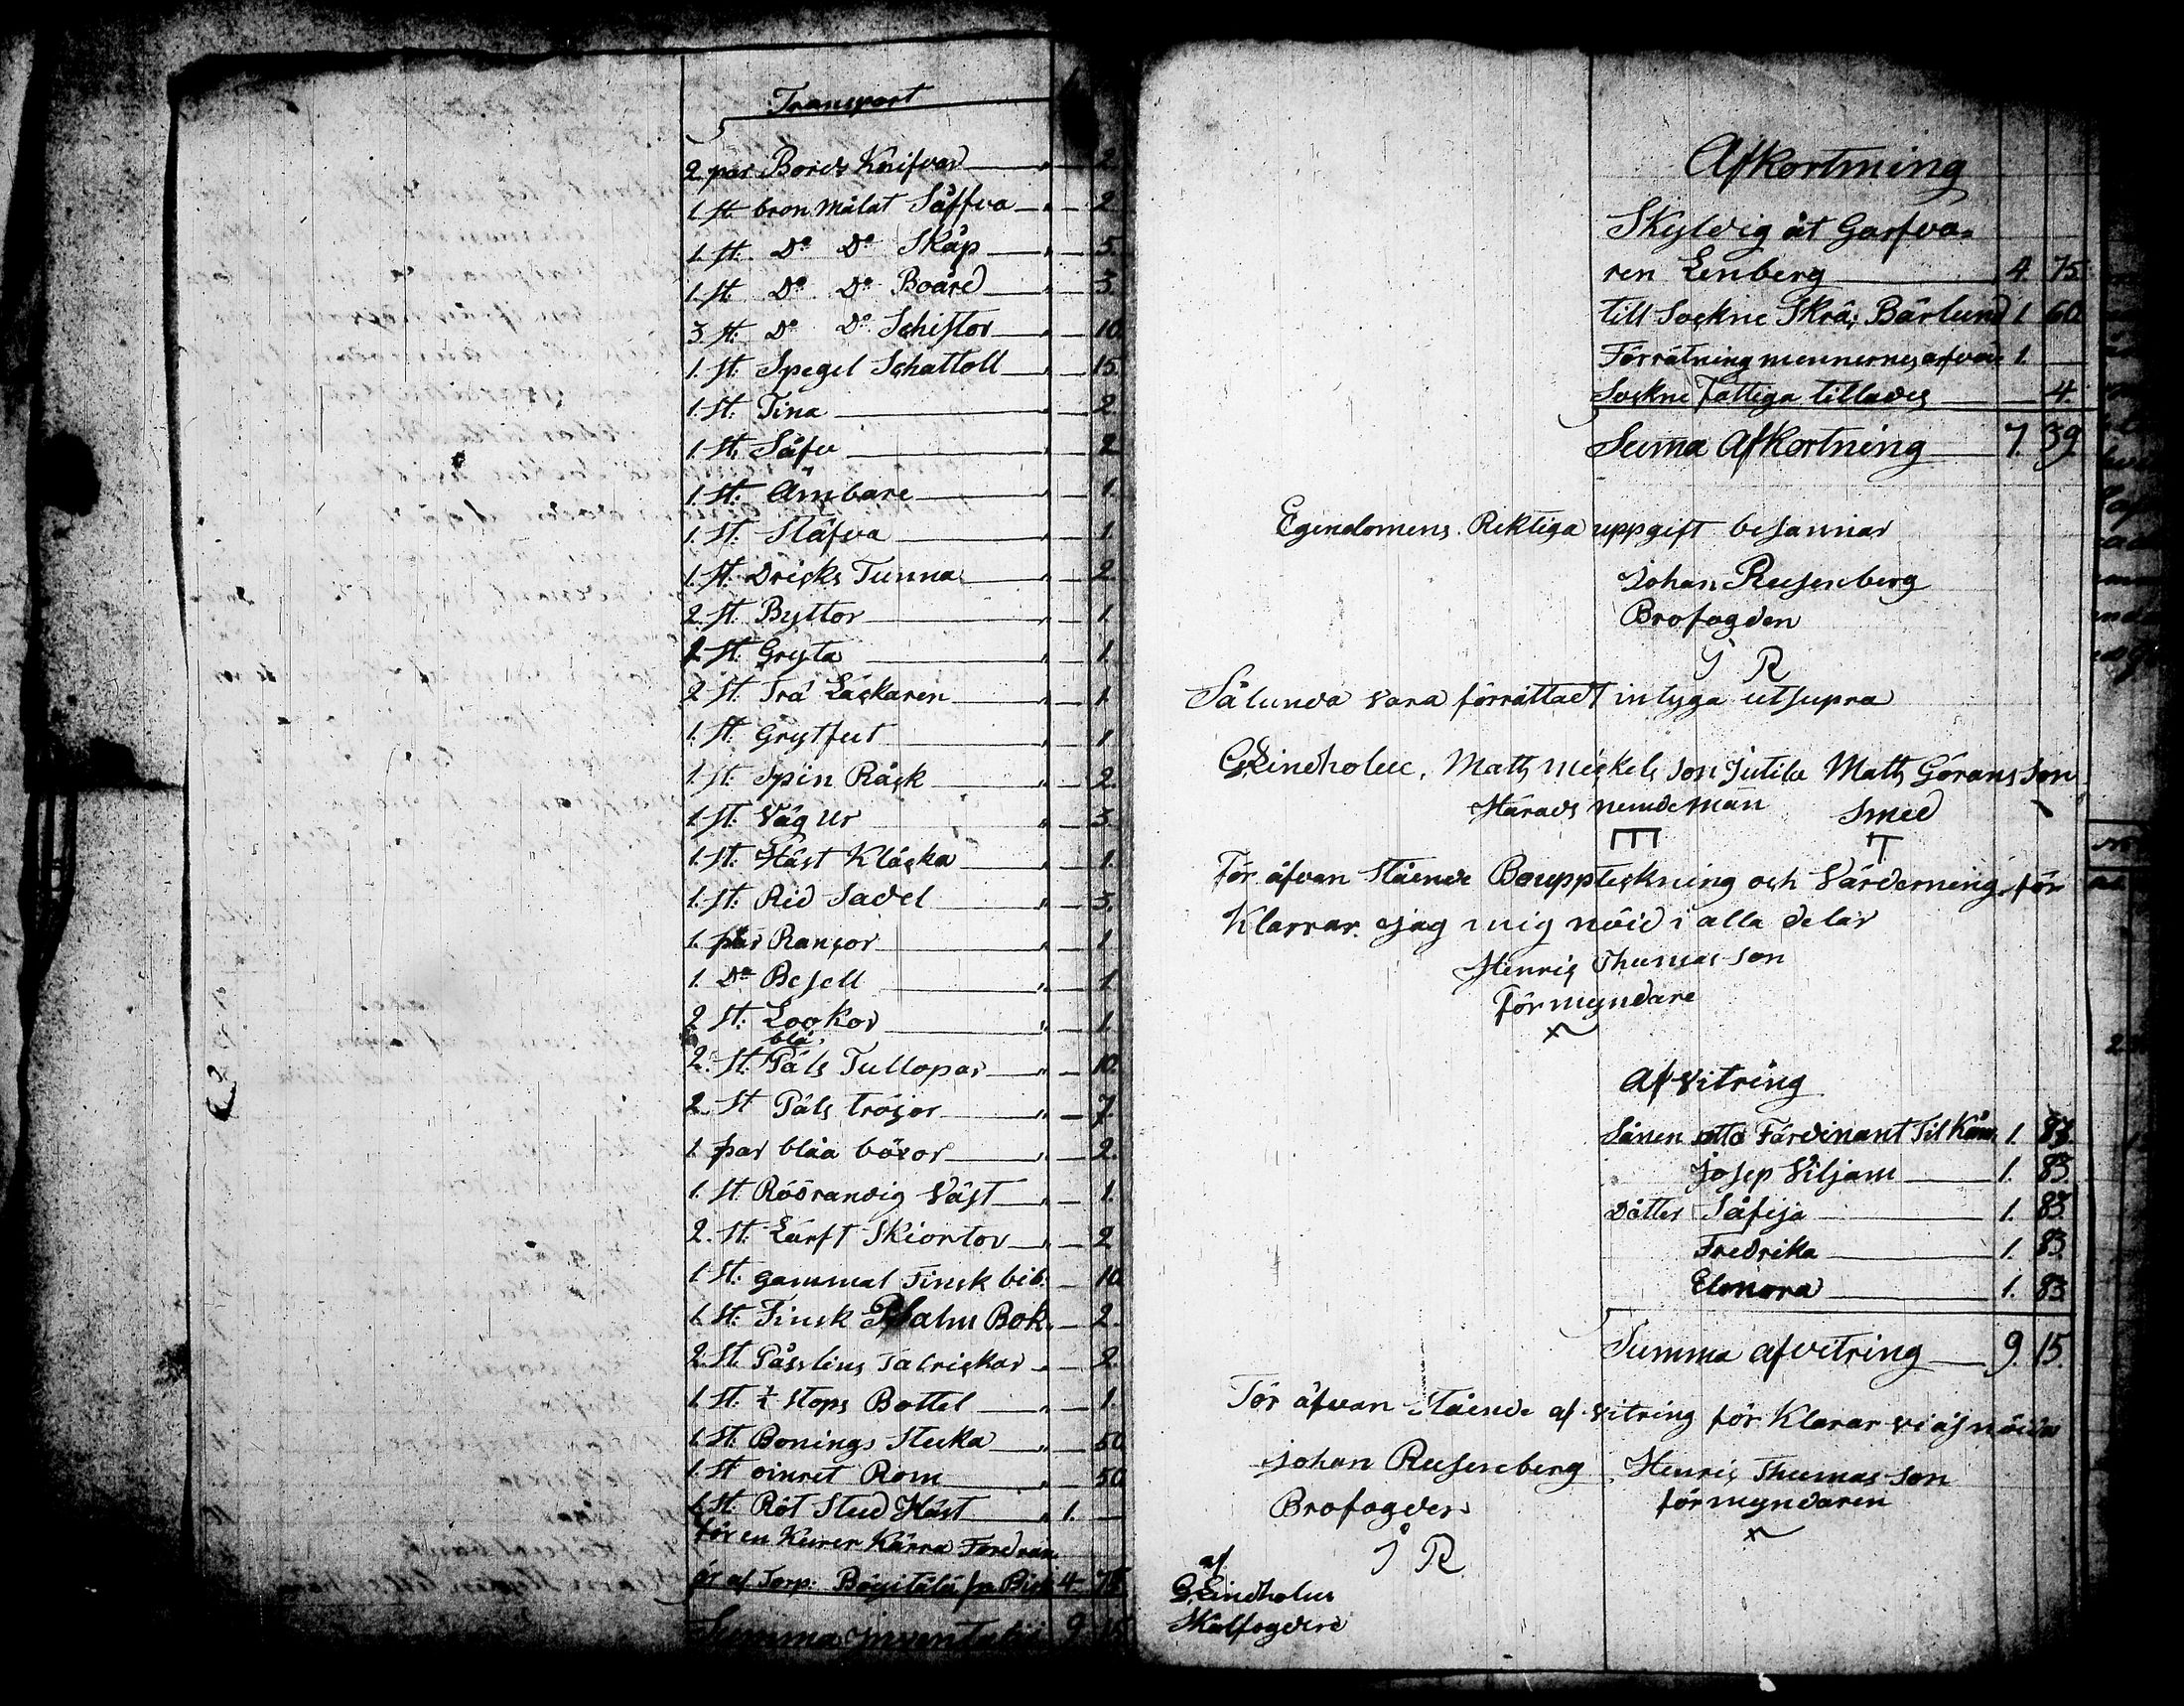 Transport
2 par Bords Knifvar " 2
1. St. bron Målat Såffva " 2
1. St. Do Do Skåp " 5.
1. St. Do Do Boård " 3.
3. St. Do Do Schistor " 10.
1. St. Spegel Schattoll " 15.
1. St. Tina " 2.
1. St. Såfv " 2
1. St. Ämbare " 1.
1. St. Stäfva " 1.
1. St. Dricks Tunna " 2.
2. St. Byttor " 1.
1. St. Gryta " 1.
2. St. Trä Läckaren " 1.
1. St. Grytfut " 1
1. St. Spin Råck " 2.
1. St. Väg Ur " 3.
1. St. Häst Kläcka " 1.
1. St. Rid Sadel " 3.
1. par Rancor " 1
1. Do Besell " 1
2 St. Lookor " 1.
blå
2. St. Päls Tullopar " 10.
2. St Päls tröjor " 7.
1. par blåa böxor " 2.
1. St. Rödrandig Väst " 1.
2. St. Lärft Skiortor " 2
1. St. gammal Finsk bib. 10.
1. St. Finsk Psalm Bok 2.
2. St. Påsslins Talrickar 2.
1. St. ½ Stops Bottel " 1.
1. St. Bonings Stuka " 50
1. St oinret Rom " 50
1. St. Röt Stud Häst " 1.
för en Kurer Kärra Fordran
är af Torp. 4 75
Summa Inventarii 9. 15
Afkortning
Skyldig åt Garfva=
ren Lenberg 4. 75.
till Sockne Skrä: Bärlund 1. 60.
Förrätning mennernes arfvode 1.
Sockne Fattiga tillades 4.
Summa Afkortning 7. 39
Egendomens Riktiga uppgift besannar
Johan Rusenberg
Brofogden
J R
Sålunda vara förrättadt intyga utsupra
G Lindholm, Matts Mickels son Jutila Matts Görans son
Härads nemdemän Smed
För åfvan Stående Bouppteckning och Värderning för
Klarrar jag mig nöid i alla delar
Henric Thumas son
förmyndare
x
Afvitring
Sånen otto Färdinant Til Kåm. 1. 83.
Josep Viljam 1. 83.
Dotter Såfija 1. 83
Fredrika 1. 83.
Elonora 1. 83
Summa afvitring 9. 15.
För åfvan Stående af vitring för Klarar vi åss nöida
Johan Rusenberg Henric Thumas son
Brofogden förmyndaren
J R x
af
G Lindholm
Skälfogden